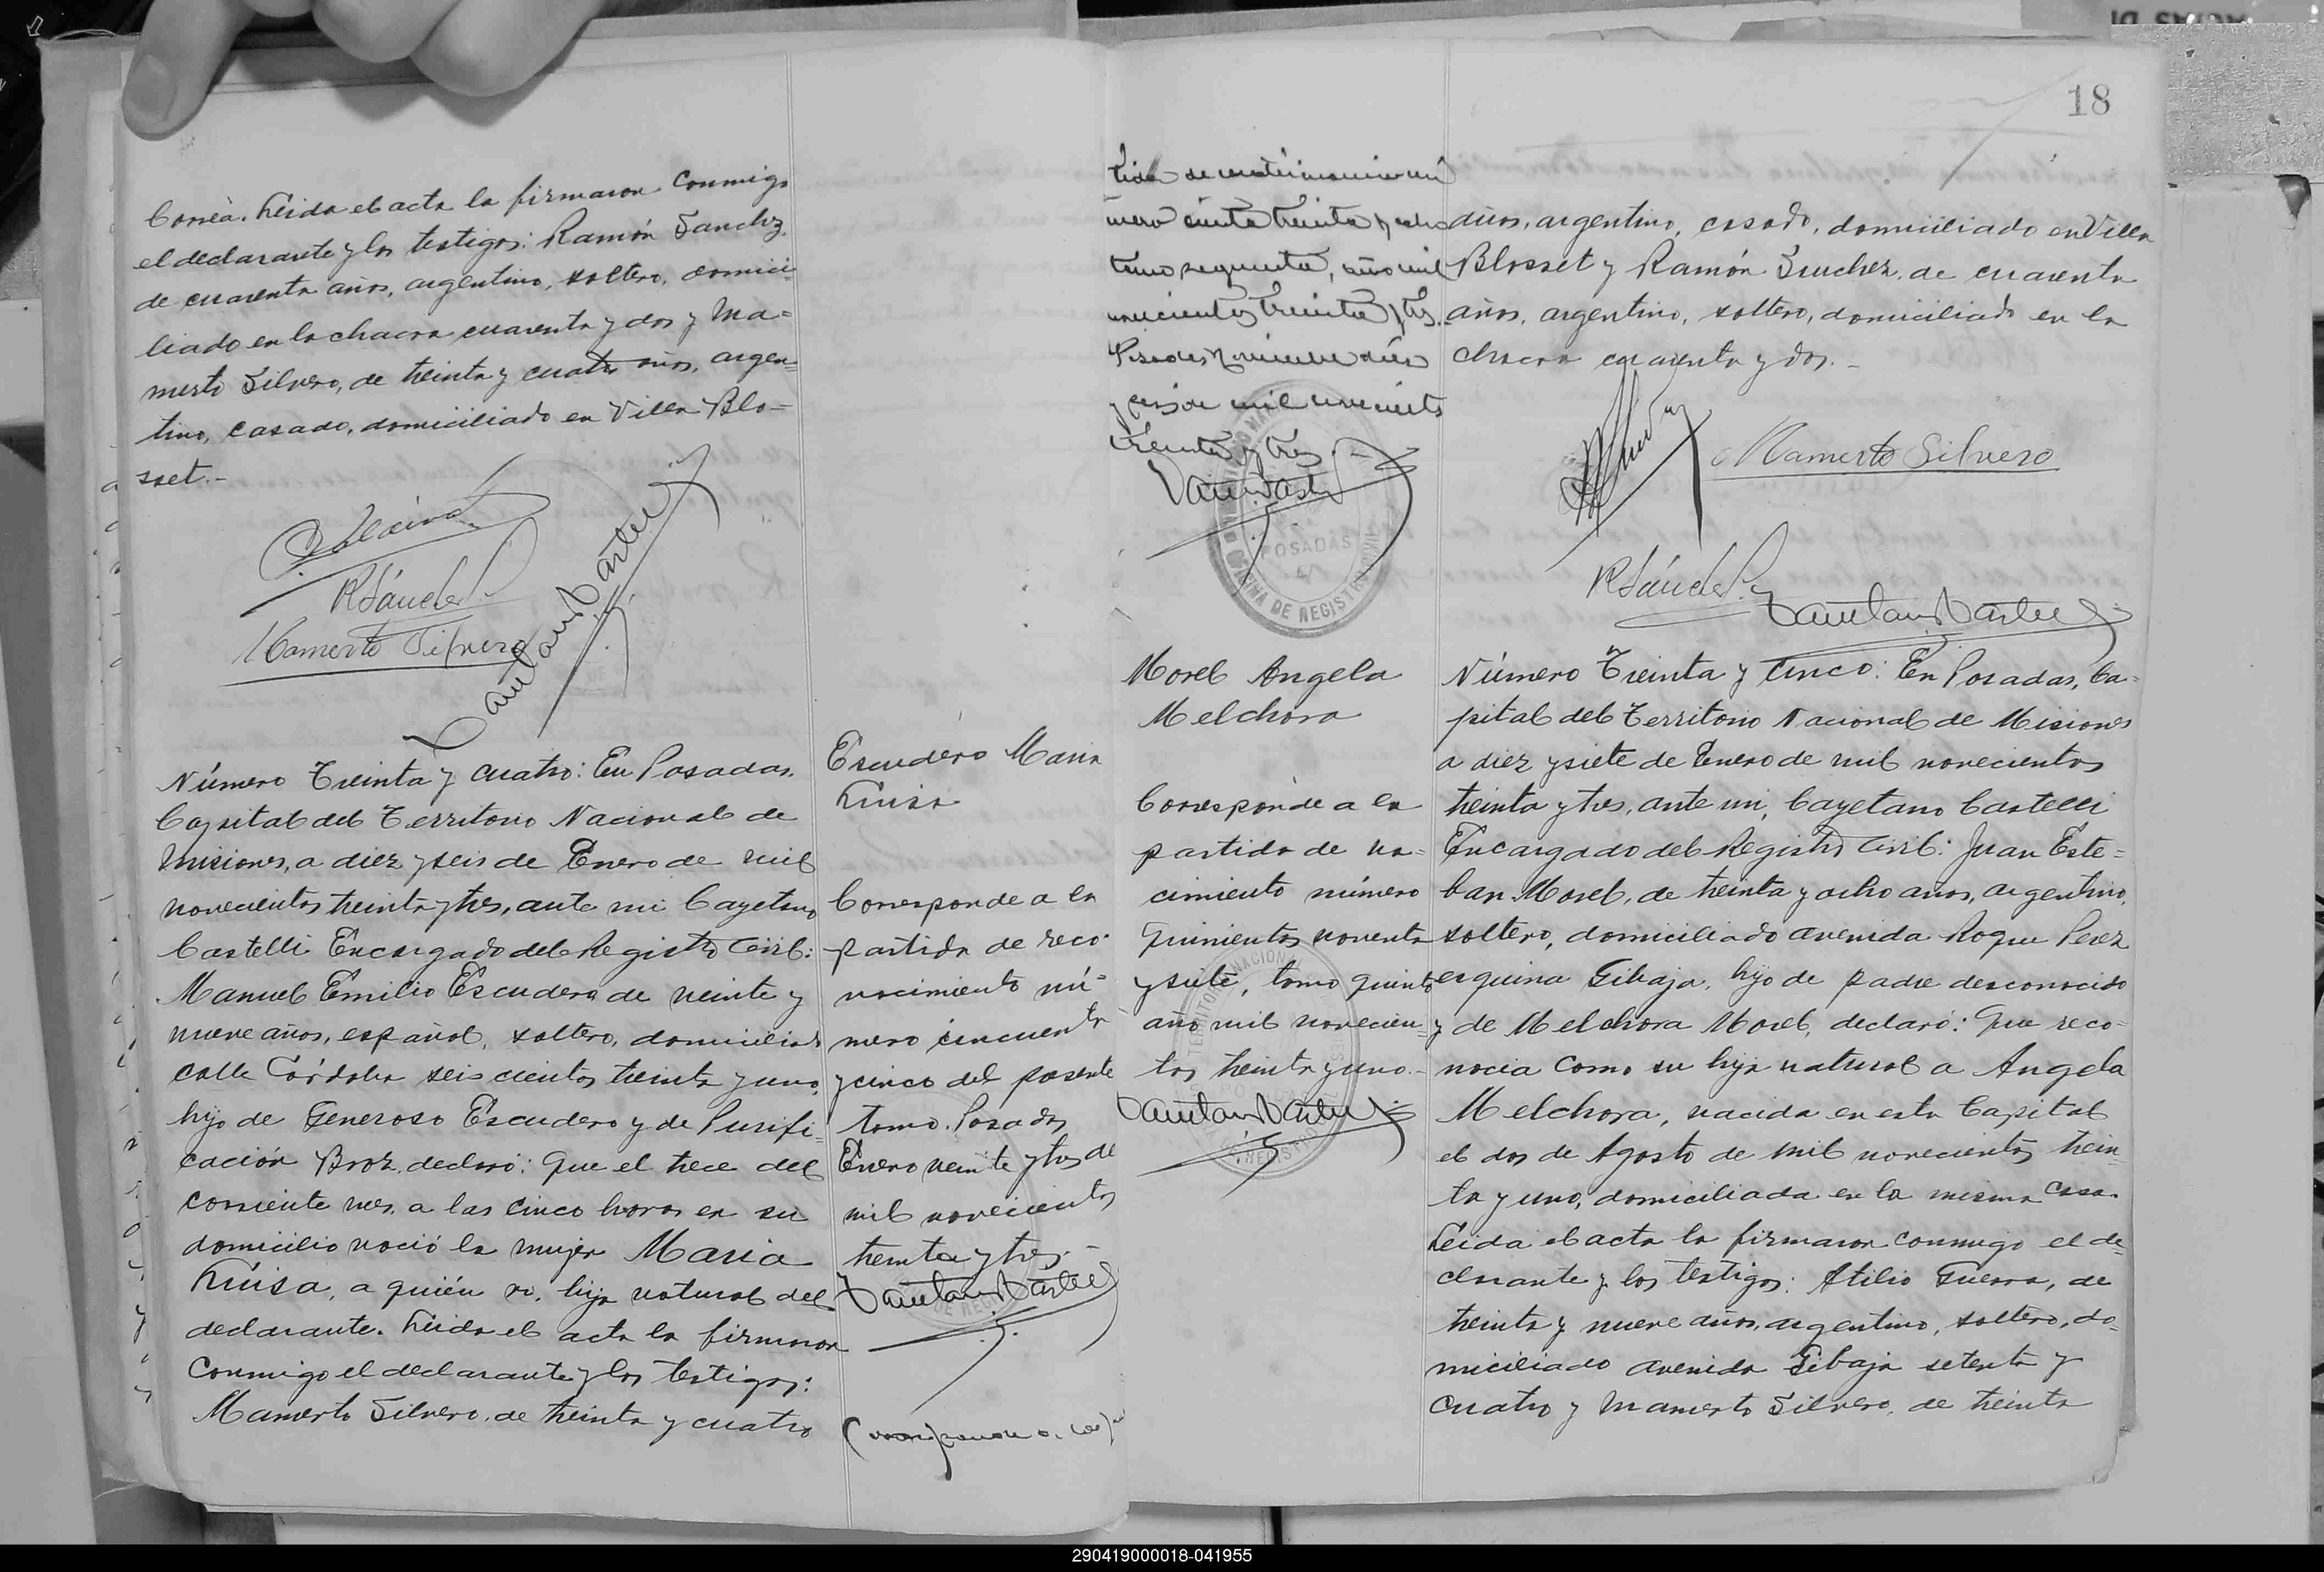 Correa. Leida el acta la firmaron conmigo
el declarante y los testigos: Ramón Sanchez
de cuarenta años, argentino, soltero, domici-
liado en la chacra cuarenta y dos y Ma=
merto Silvero, de treinta y cuatro años, argen=
tino, casado, domiciliado en Villa Blo-
sset.-
RSánchez
Mamerto Silvero
Número Treinta y cuatro: En Posadas,
Capital del Territorio Nacional de
Misiones, a diez y seis de Enero de mil
novecientos treinta y tres, ante mi Cayetano
Castelli Encargado del Registro Civil:
Manuel Emilio Escudero de veinte y
nueve años, español, soltero, domiciliado
calle Córdoba seiscientos treinta y uno,
hijo de Generoso Escudero y de Purifi-
cación Broz, declaró: Que el trece del
corriente mes, a las cinco horas en su
domicilio nació la mujer Maria
Luisa, a quién vi, hija natural del
declarante. Leida el acta la firmaron
conmigo el declarante y los testigos:
Mamerto Silvero, de treinta y cuatro
Escudero Maria
Luisa
Corresponde a la
partida de reco-
nocimiento nú=
mero cincuenta
y cinco del presente
tomo. Posadas
Enero veinte y tres de
mil novecientos
treinta y tres.-
(corresponde a la)
18
tida de matrimonio nú
mero ciento treinta y ocho
tomo segundo, año mil
novecientos treinta y tres.
Posadas Noviembre diez
y seis de mil novecientos
treinta y tres.-
POSADAS
OFICINA DE REGISTRO CIVIL
Morel Angela
Melchora
Corresponde a la
partida de na=
cimiento número
quinientos noventa
y siete, tomo quinto
año mil novecien=
tos treinta y uno.-
años, argentino, casado, domiciliado en Villa
Blosset y Ramón Sanchez, de cuarenta
años, argentino, soltero, domiciliado en la
chacra cuarenta y dos.-
Mamerto Silvero
RSánchez
Número Treinta y cinco: En Posadas, Ca=
pital del Territorio Nacional de Misiones
a diez y siete de Enero de mil novecientos
treinta y tres, ante mi, Cayetano Castelli
Encargado del Registro Civil: Juan Este=
ban Morel, de treinta y ocho años, argentino,
soltero, domiciliado avenida Roque Perez
esquina Gibaja, hijo de padre desconocido
y de Melchora Morel, declaró: Que reco-
nocia como su hija natural a Angela
Melchora, nacida en esta Capital
el dos de Agosto de mil novecientos trein-
ta y uno, domiciliada en la misma casa.
Leida el acta la firmaron conmigo el de-
clarante y los testigos: Atilio Guerra, de
treinta y nueve años, argentino, soltero, do-
miciliado avenida Gibaja setenta y
cuatro y Mamerto Silvero, de treinta
290419000018-041955